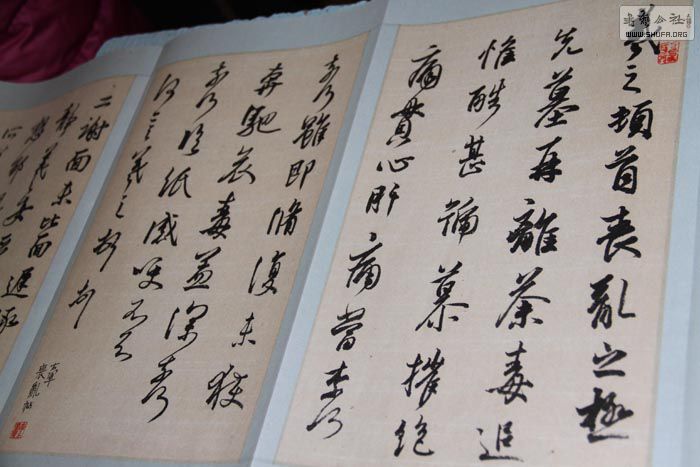 羲之頓首喪亂之極
先墓再離荼毒追
惟酷甚號慕摧絕
痛貫心肝痛當奈何
奈何雖即脩復未獲
奔馳哀毒益深奈何
奈何臨紙感哽不知
何言羲之頓首
二謝面未比面遲
喪亂帖
书法公社
WWW.SHUFA.ORG